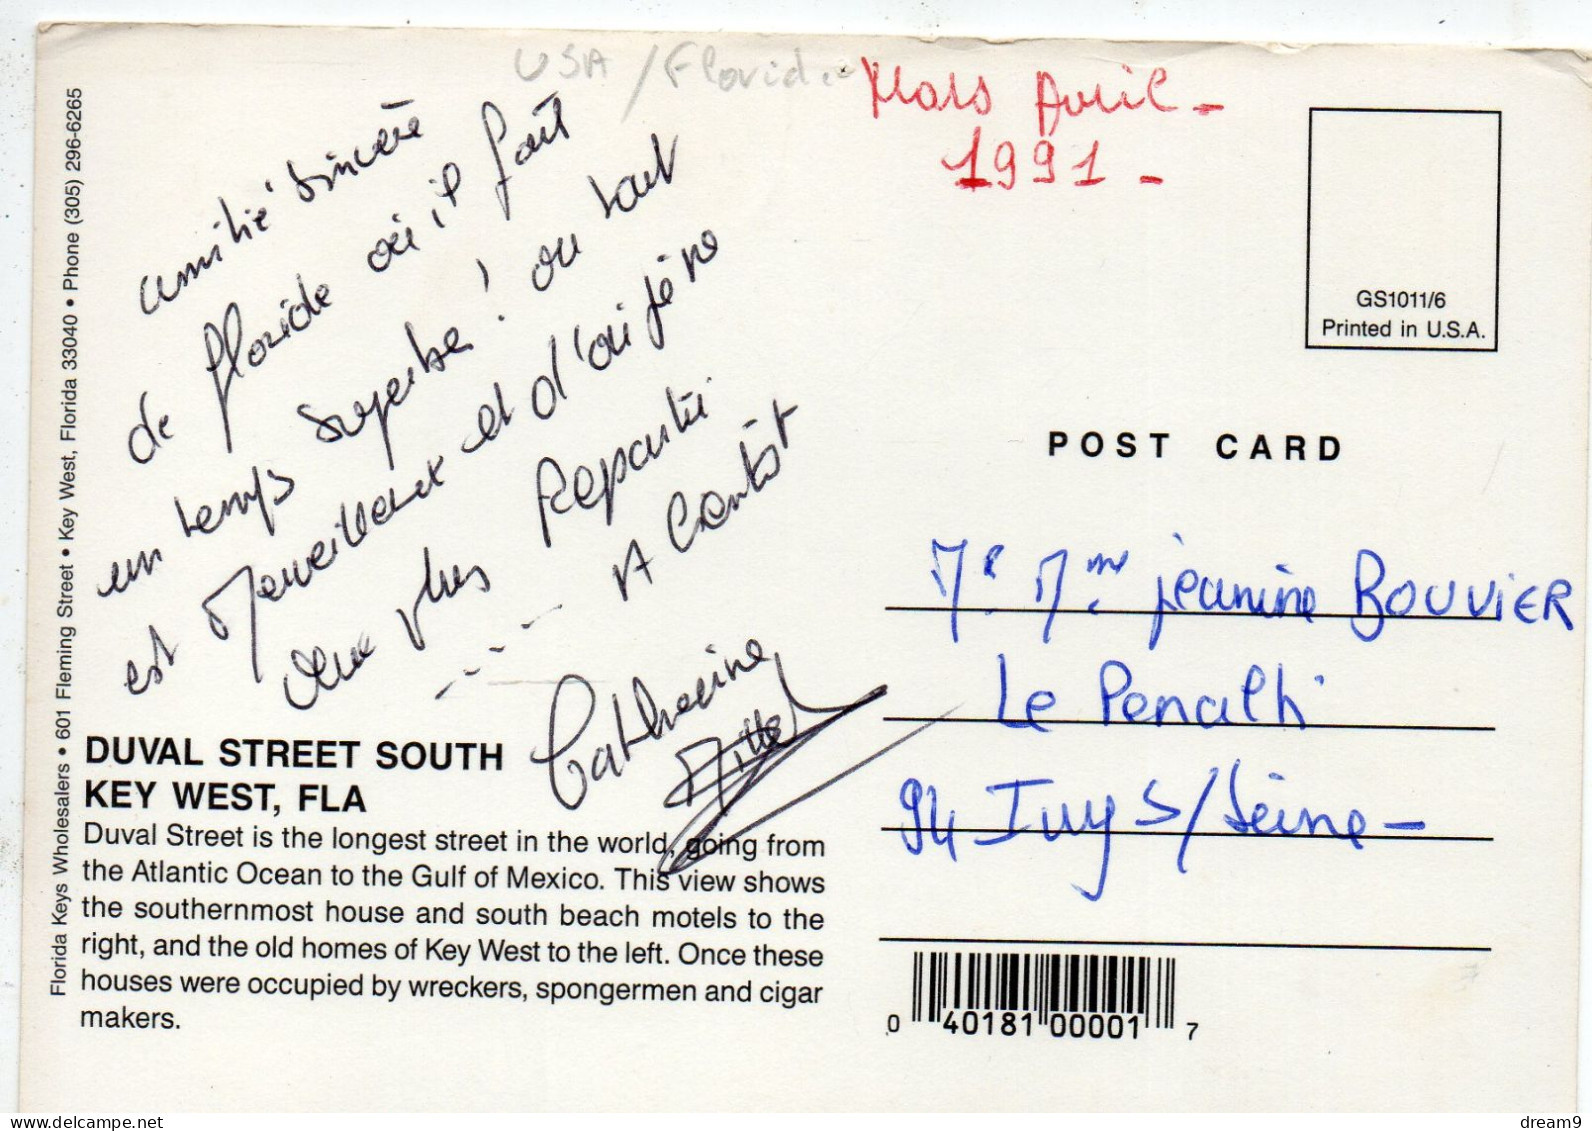 USA / Floride
Mars Avril -
1991 -
amitié sincère
de floride où il fait
un temps superbe! ou tout
est Merveilleux et d'où je ne
veux plus Repartir
--- A bientôt
Catherine
DUVAL STREET SOUTH
KEY WEST, FLA
Duval Street is the longest street in the world, going from
the Atlantic Ocean to the Gulf of Mexico. This view shows
the southernmost house and south beach motels to the
right, and the old homes of Key West to the left. Once these
houses were occupied by wreckers, spongermen and cigar
makers.
Florida Keys Wholesalers • 601 Fleming Street • Key West, Florida 33040 • Phone (305) 296-6265
GS1011/6
Printed in U.S.A.
POST CARD
Mr Mme jeanine BOUVIER
Le Penalti
94 Ivry S/Seine -
0 40181 00001 7
delcampe.net
dream9